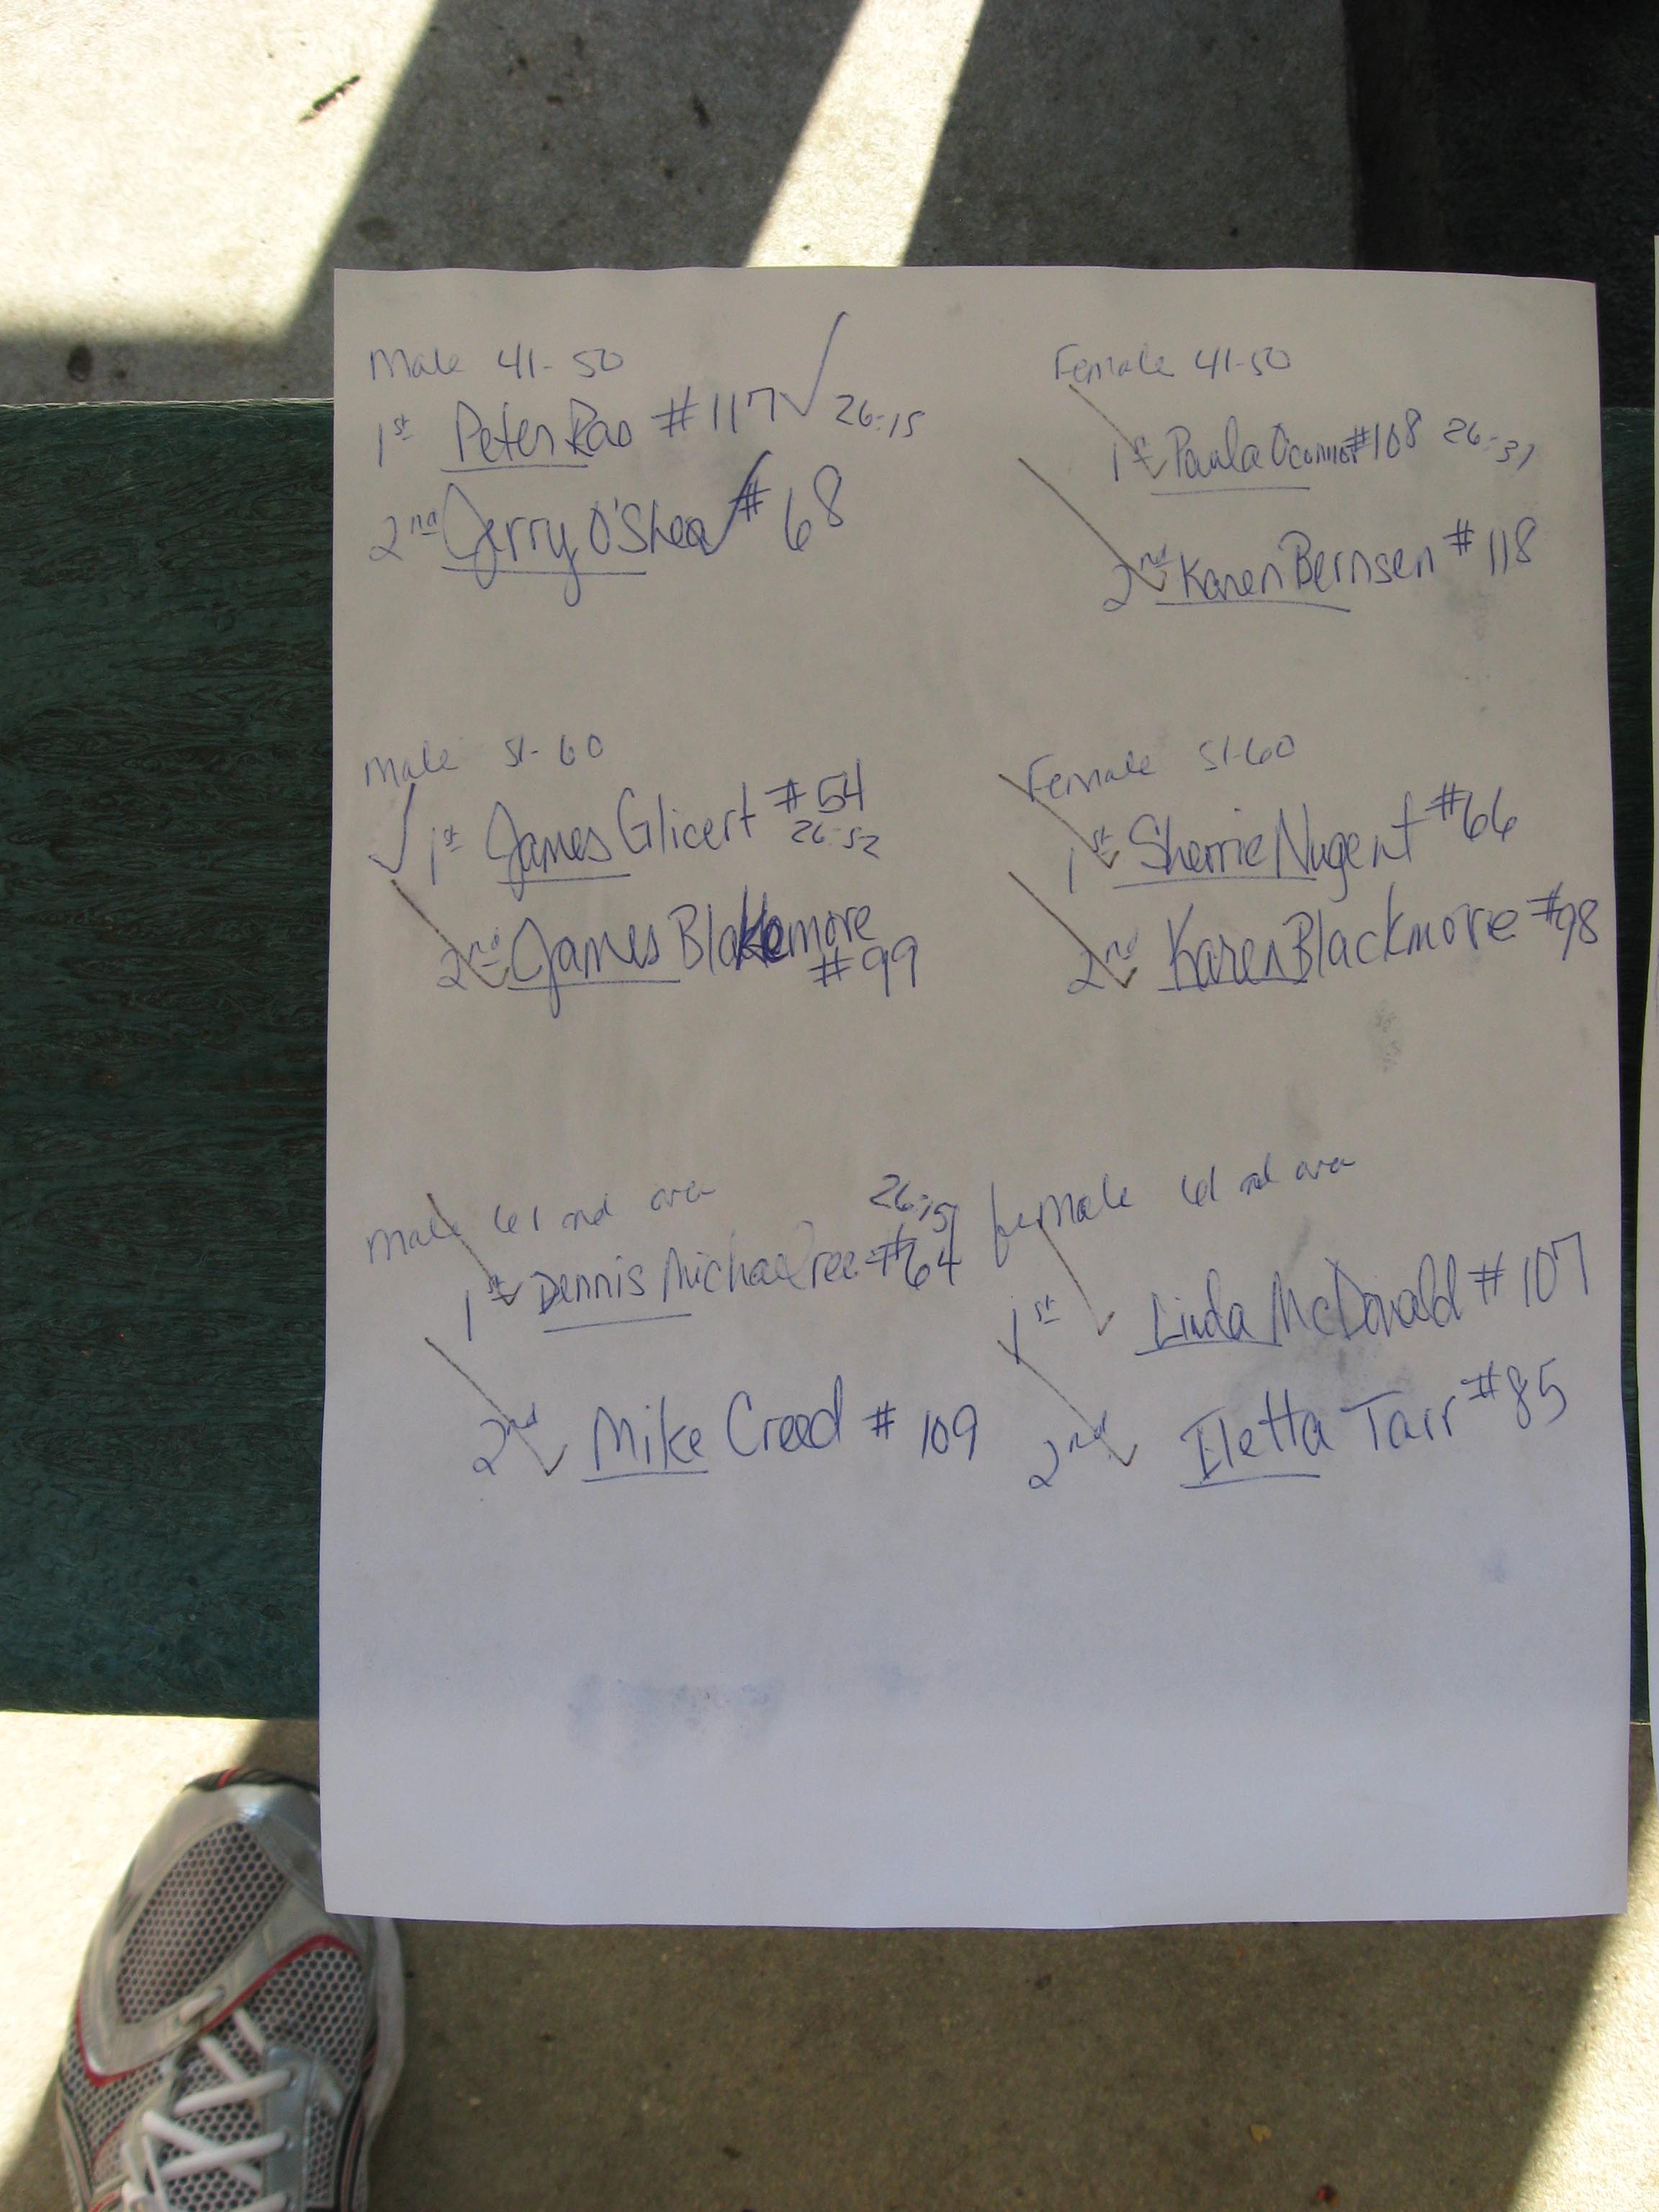 Male 41-50
1st Peter Rao #117 26:15
2nd Jerry O'Shea #68
Female 41-50
1st Paula Oconnor #108 26:31
2nd Karen Bernsen #118
Male 51-60
1st James Glicert #54
26:52
2nd James Blakemore
#99
Female 51-60
1st Sherrie Nugent #66
2nd Karen Blackmore #98
Male 61 and over
26:15
1st Dennis #64
2nd Mike Creed #109
female 61 and over
1st Linda McDonald #107
2nd Iletta Tarr #85